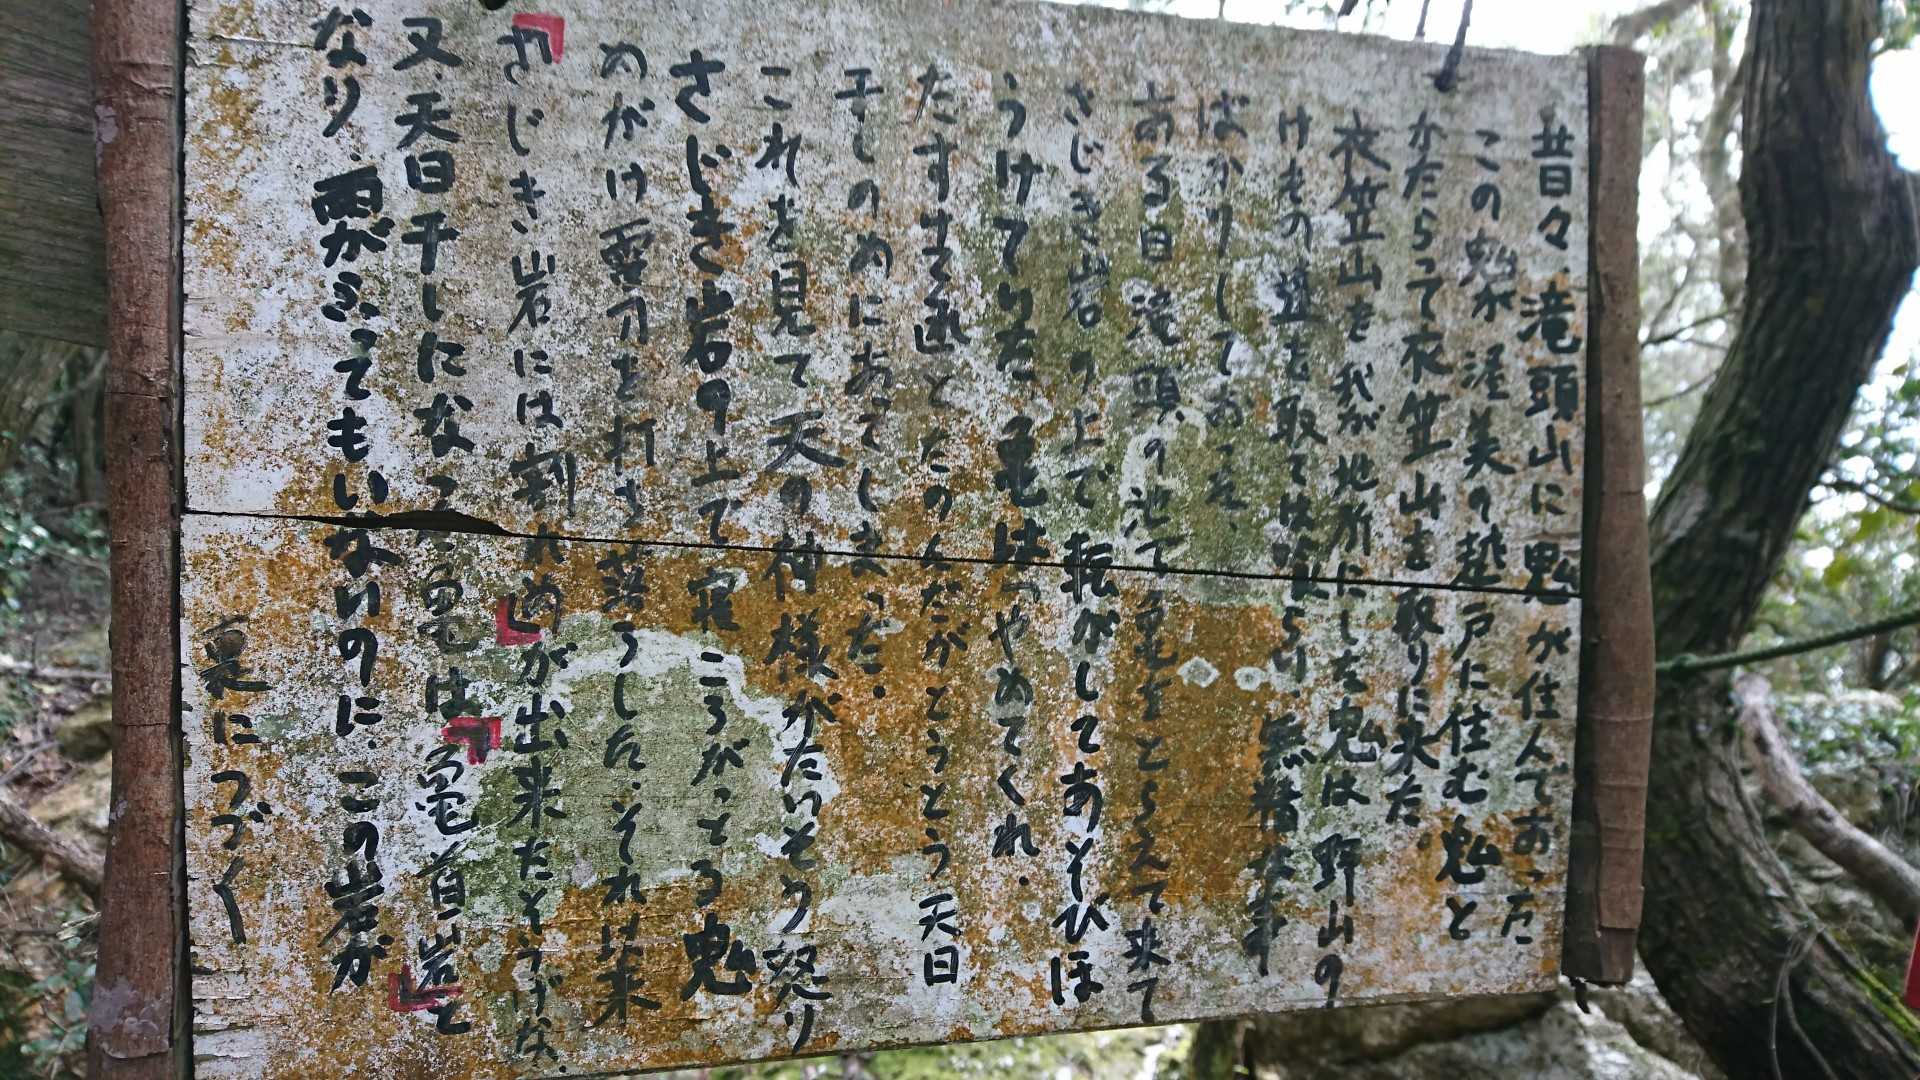 昔々、滝頭山に鬼が住んでおった
この鬼が渥美の越戸に住む鬼と
かたらって衣笠山を取りに来た
衣笠山を我が地所にした鬼は野山の
けもの達を取ては
ばかりしておった、
ある日滝頭の池で亀をとらえて来て
さじき岩の上で転がしてあそびほ
うけてりた、亀は、やめてくれ、
たすけて と たのんだがとうとう天日
干しのめにあってしまった、
これを見て天の神様がたいそう怒り
さじき岩の上で寝ころがってる鬼
めがけ雷刀を打ち落うした、それ以来
『さじき岩には割れめ』が出来たそうげな、
又、天日干しになった亀は『亀首岩』と
なり、雨がふってもいないのに、この岩が
裏につづく